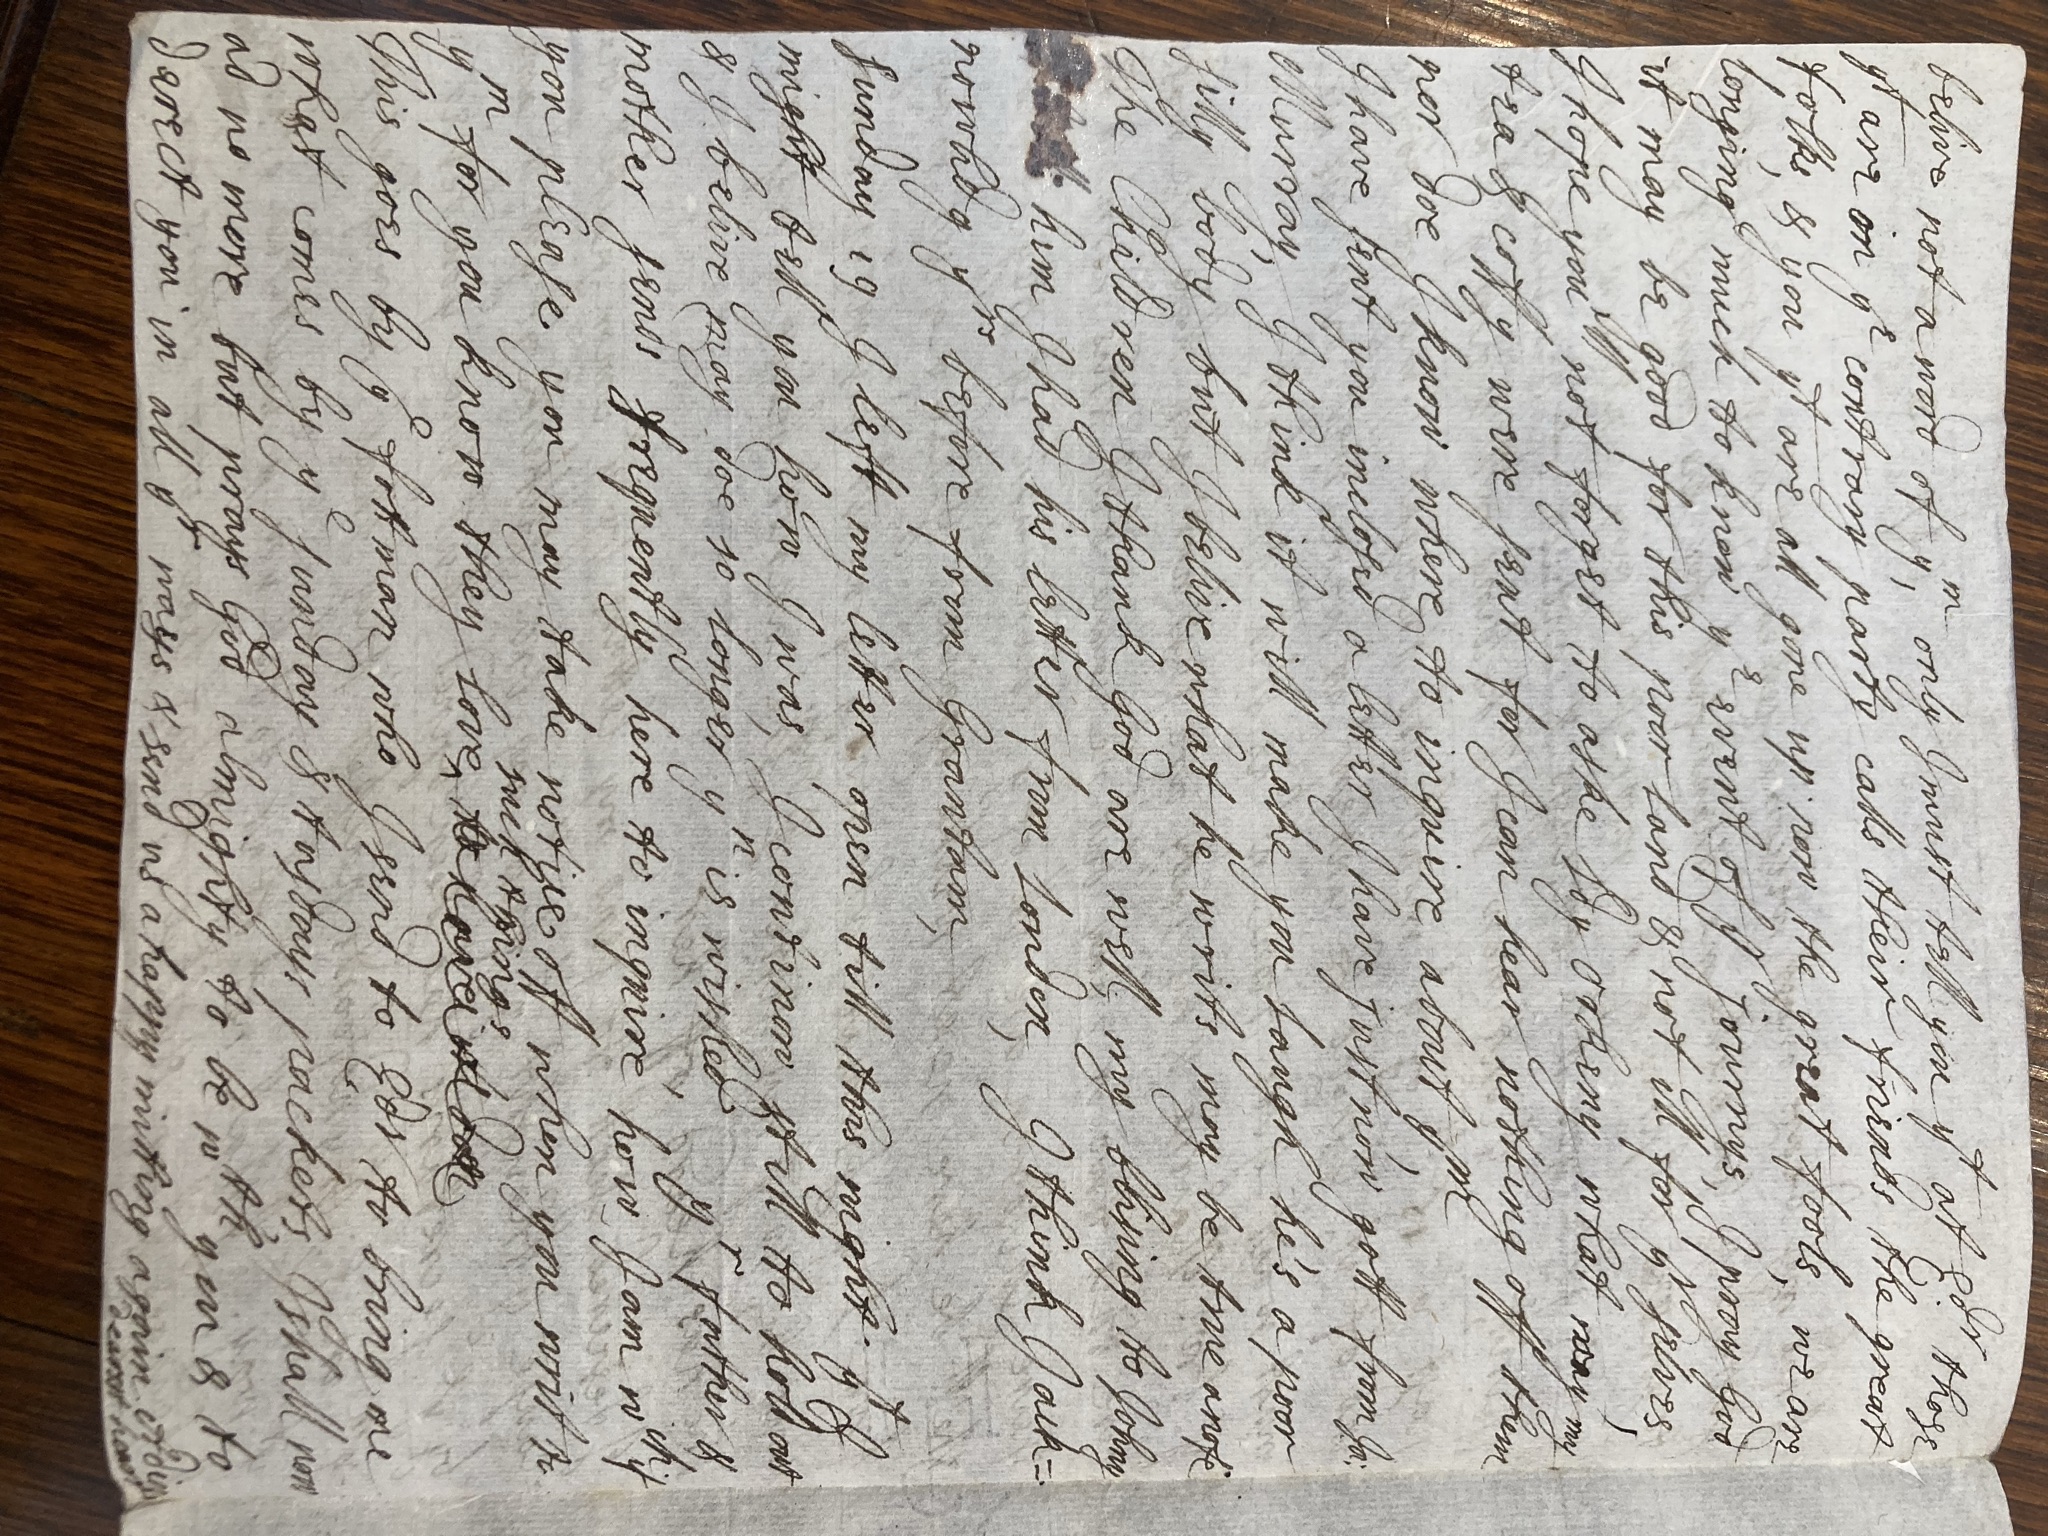 belive not a word of ym, only I must tell you yt at Edr those
yt are on ye contrary party calls their friends the great
folks, & you yt are all gone up now the great fools, we are
longing much to know ye event of yr journys, I pray God
it may be good for this poor land & not ill for yr selves,
I hope you'll not forget to aske Ldy Orkeny what way my
tea & coffy were sent for I can hear nothing off them
nor doe I know where to inquire about ym,
I have sent you inclosed a letter I have just now gott from Ja:
Murray, I think it will make you laugh he's a poor
silly body but I belive what he writs may be true anofe
The Children I thank God are well, my blising to Johny
him I had his letter from London, I think I ack=
nowledg yrs before from Grantam,
Sunday 19 I left my letter open till this night yt I
might tell you how I was, I continow still to hold out
& I belive may doe so longer yn is wished, yr father &
mother sends frequently here to inquire how I am wch if
you please you may take notice off when you writ to
ym for you know they love ^ such things
This goes by ye fottman who I send to Edr to bring me
what comes by ye sunday & tusdays packets, I shall now
ad no more but prays God almighty to be wth you & to
derect you in all yr ways & send us a happy mitting again Adiu
dearest heart